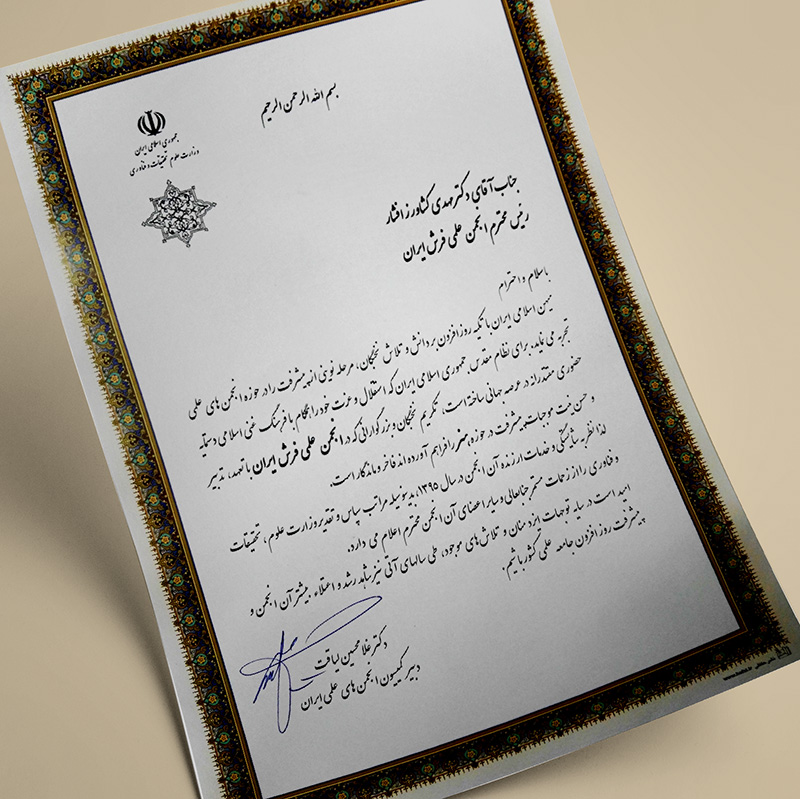 بسم الله الرحمن الرحیم
جمهوری اسلامی ایران
وزارت علوم تحقیقات و فناوری
جناب آقای دکتر مهدی کشاورز افشار
رئیس محترم انجمن علمی فرش ایران
با سلام و احترام
میهن اسلامی ایران با تکیه روز افزون بر دانش و تلاش نخبگان، مرحله نوینی از پیشرفت را در حوزه انجمن های علمی
تجربه می نماید. برای نظام مقدس جمهوری اسلامی ایران که استقلال و عزت خود را همگام با فرهنگ غنی اسلامی دستمایه
حضوری مقتدرانه در عرصه جهانی ساخته است، تکریم نخبگان و بزرگوارانی که در انجمن علمی فرش ایران با تعهد، تدبیر
و حسن نیت موجبات پیشرفت در حوزه هنر را فراهم آورده اند فاخر و ماندگار است.
لذا نظر به شایستگی و خدمات ارزنده آن انجمن در سال ۱۳۹۵، بدینوسیله مراتب سپاس و تقدیر وزارت علوم، تحقیقات
و فناوری را از زحمات مستمر جنابعالی و سایر اعضای آن انجمن محترم اعلام می دارد.
امید است در سایه توجهات ایزد منان و تلاش های موجود، طی سالهای آتی نیز شاهد رشد و اعتلاء بیشتر آن انجمن و
پیشرفت روز افزون جامعه علمی کشور باشیم.
دکتر غلامحسین لیاقت
دبیر کمیسیون انجمن های علمی ایران